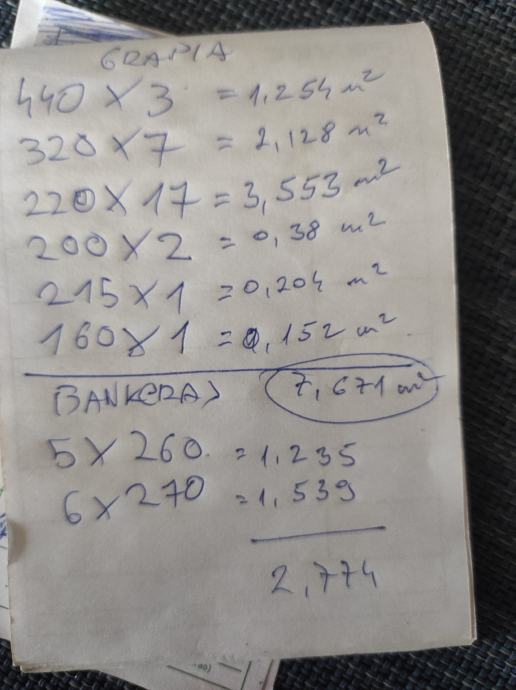 GRAPIA
440 X 3 = 1,254 m²
320 X 7 = 2,128 m²
220 X 17 = 3,553 m²
200 X 2 = 0,38 m²
215 X 1 = 0,204 m²
160 X 1 = 0,152 m²
7,671 m²
5 X 260. = 1,235
6 X 270 = 1,539
2,774